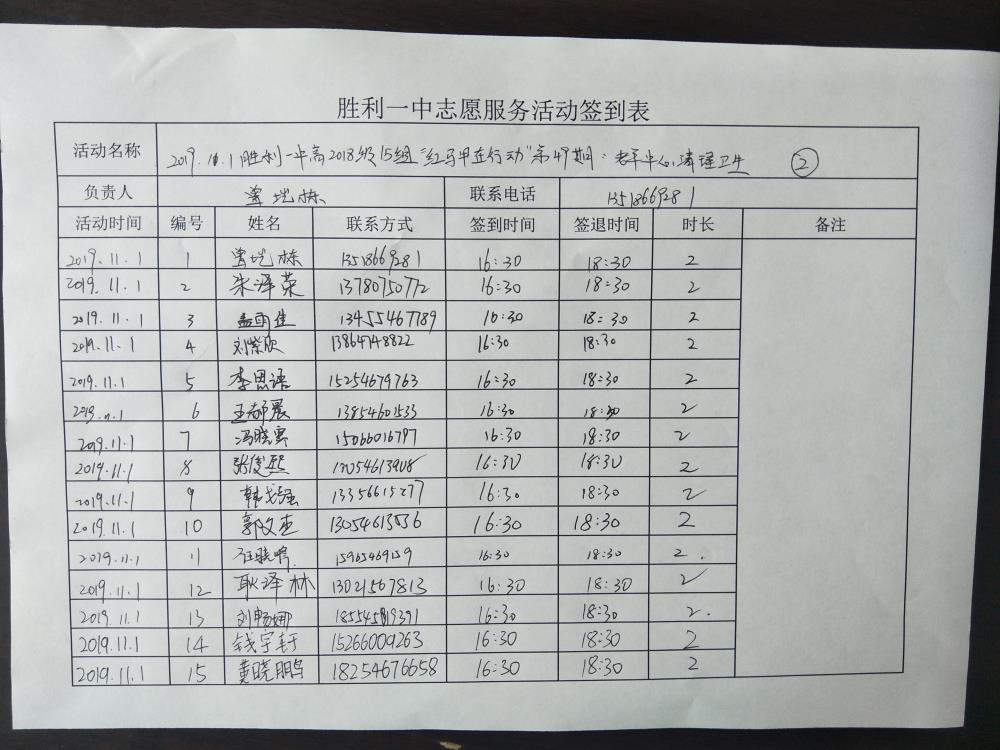 胜利一中志愿服务活动签到表
活动名称 2019.11.1胜利一中高2018级15组"红马甲在行动"第49期：老年中心清理卫生 ②
负责人 联系电话 13518669281
活动时间 编号 姓名 联系方式 签到时间 签退时间 时长 备注
2019.11.1 1 13518669281 16:30 18:30 2
2019.11.1 2 朱泽荣 13780750772 16:30 18:30 2
2019.11.1 3 孟雨佳 13455467789 16:30 18:30 2
2019.11.1 4 刘紫欣 13864748822 16:30 18:30 2
2019.11.1 5 李思语 15254679763 16:30 18:30 2
2019.11.1 6 13854601533 16:30 18:30 2
2019.11.1 7 冯晓雲 15066016797 16:30 18:30 2
2019.11.1 8 张俊熙 13054613908 16:30 18:30 2
2019.11.1 9 13356615277 16:30 18:30 2
2019.11.1 10 郭改杰 13054613536 16:30 18:30 2
2019.11.1 11 15965469159 16:30 18:30 2.
2019.11.1 12 耿泽林 13021567813 16:30 18:30 2
2019.11.1 13 刘畅娜 16:30 18:30 2.
2019.11.1 14 钱宇轩 15266009263 16:30 18:30 2
2019.11.1 15 黄晓鹏 18254676658 16:30 18:30 2